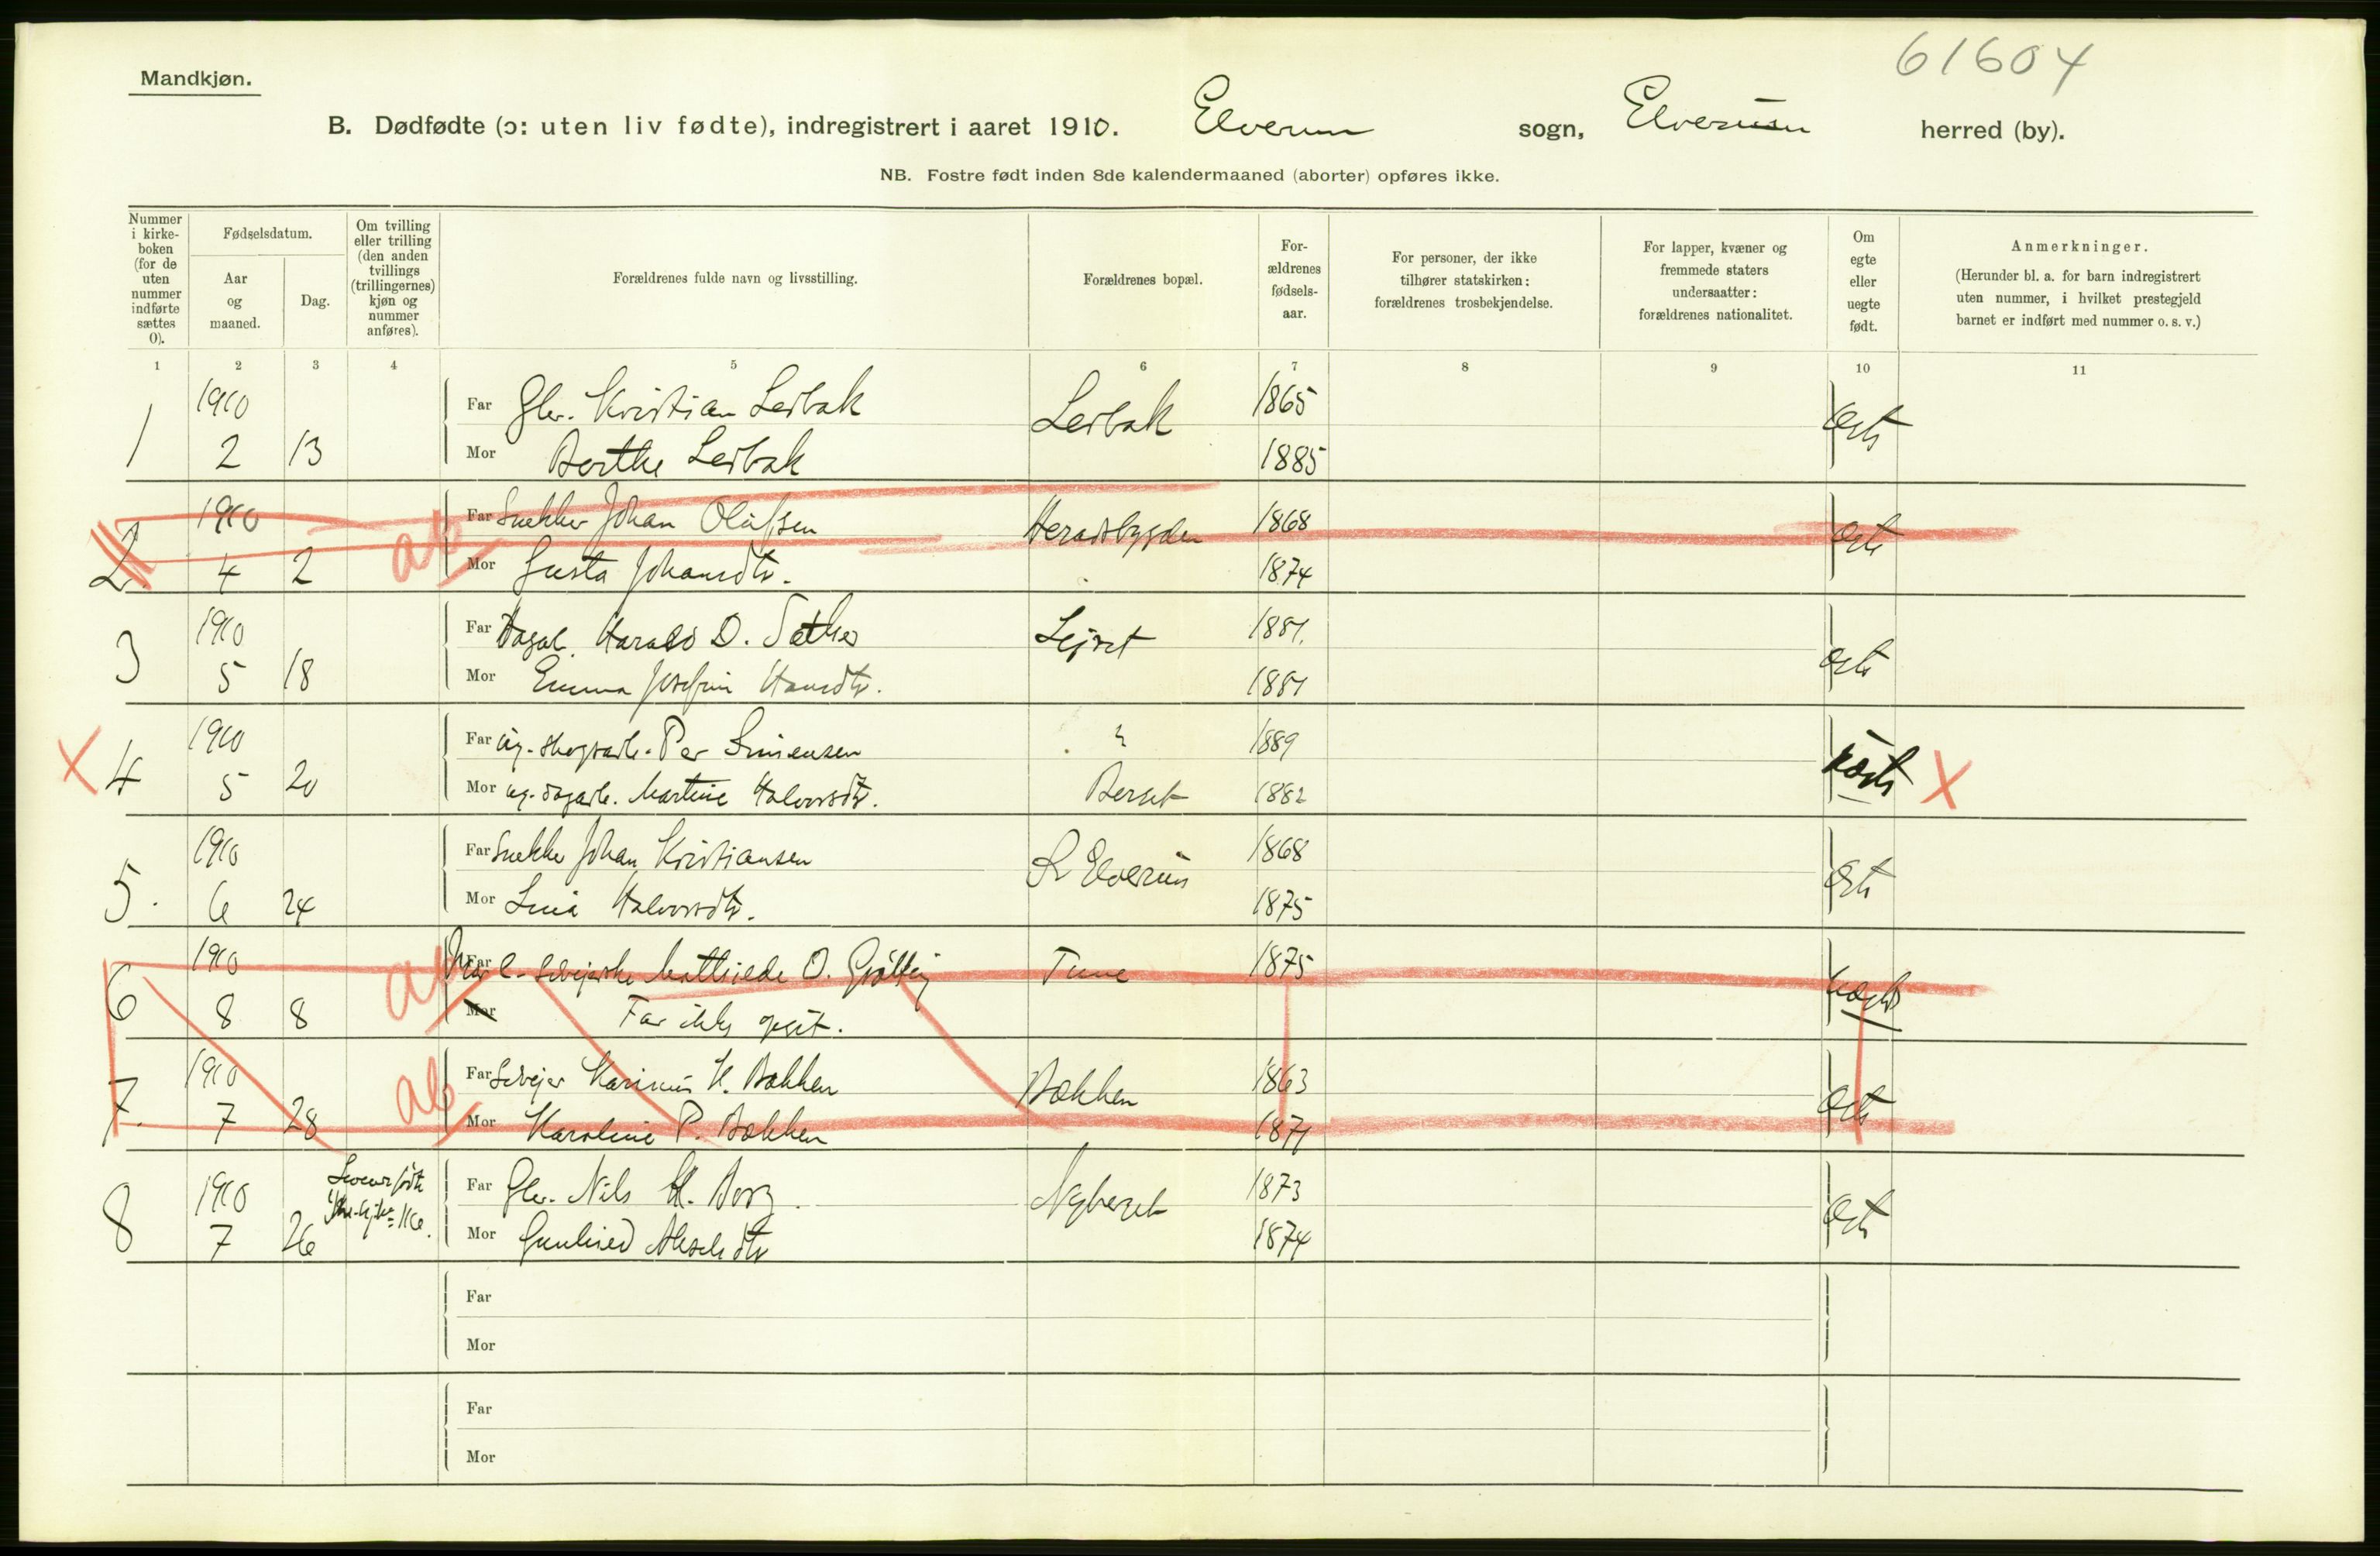 61604
Mandkjøn.
B. Dødfødte (ɔ: uten liv fødte), indregistrert i aaret 1910. Elverum sogn, Elverum herred (by).
NB. Fostre født inden 8de kalendermaaned (aborter) opføres ikke.
Nummer i kirke-boken (for de uten nummer indførte sættes 0).
Fødselsdatum.
Aar og maaned.
Dag.
Om tvilling eller trilling (den anden tvillings (trillingernes) kjøn og nummer anføres).
Forældrenes fulde navn og livsstilling.
Forældrenes bopæl.
For-ældrenes fødsels-aar.
For personer, der ikke tilhører statskirken: forældrenes trosbekjendelse.
For lapper, kvæner og fremmede staters undersaatter: forældrenes nationalitet.
Om egte eller uegte født.
Anmerkninger.
(Herunder bl. a. for barn indregistrert uten nummer, i hvilket prestegjeld barnet er indført med nummer o. s. v.)
1 2 3 4 5 6 7 8 9 10 11
1 1910 Far Kristian Leibak Leibak 1865 Ægte
2 13 Mor Berthe Leibak 1885
2 1910 ab Far Snekker Johan Olafsen Heradsbygden 1868 Ægte
4 2 Mor Gusta Johansdtr. 1874
3 1910 Far Harald D. Sæther Lejret 1881 Ægte
5 18 Mor Emma Josefin Hansdtr. 1881
4 1910 Far ug. skogsarb. Per Simensen " 1889 uægte
5 20 Mor ug. dagarb. Martine Halvorsdtr. Berset 1882
5. 1910 Far Snekker Johan Kristiansen S Elverum 1868 Ægte
6 24 Mor Lina Halvorsdtr. 1875
6 1910 ab Far Mor Mathilde O. Tune 1875 uægte
8 8 Mor Far ikke opgit.
7. 1910 ab Far Selvejer Karinus H. Bakken Bakken 1863 Ægte
7 28 Mor Karoline P. Bakken 1871
8 1910 Far Nils H. Berg Nyberget 1873 Ægte
7 26 Mor Gunhild 1874
Far
Mor
Far
Mor